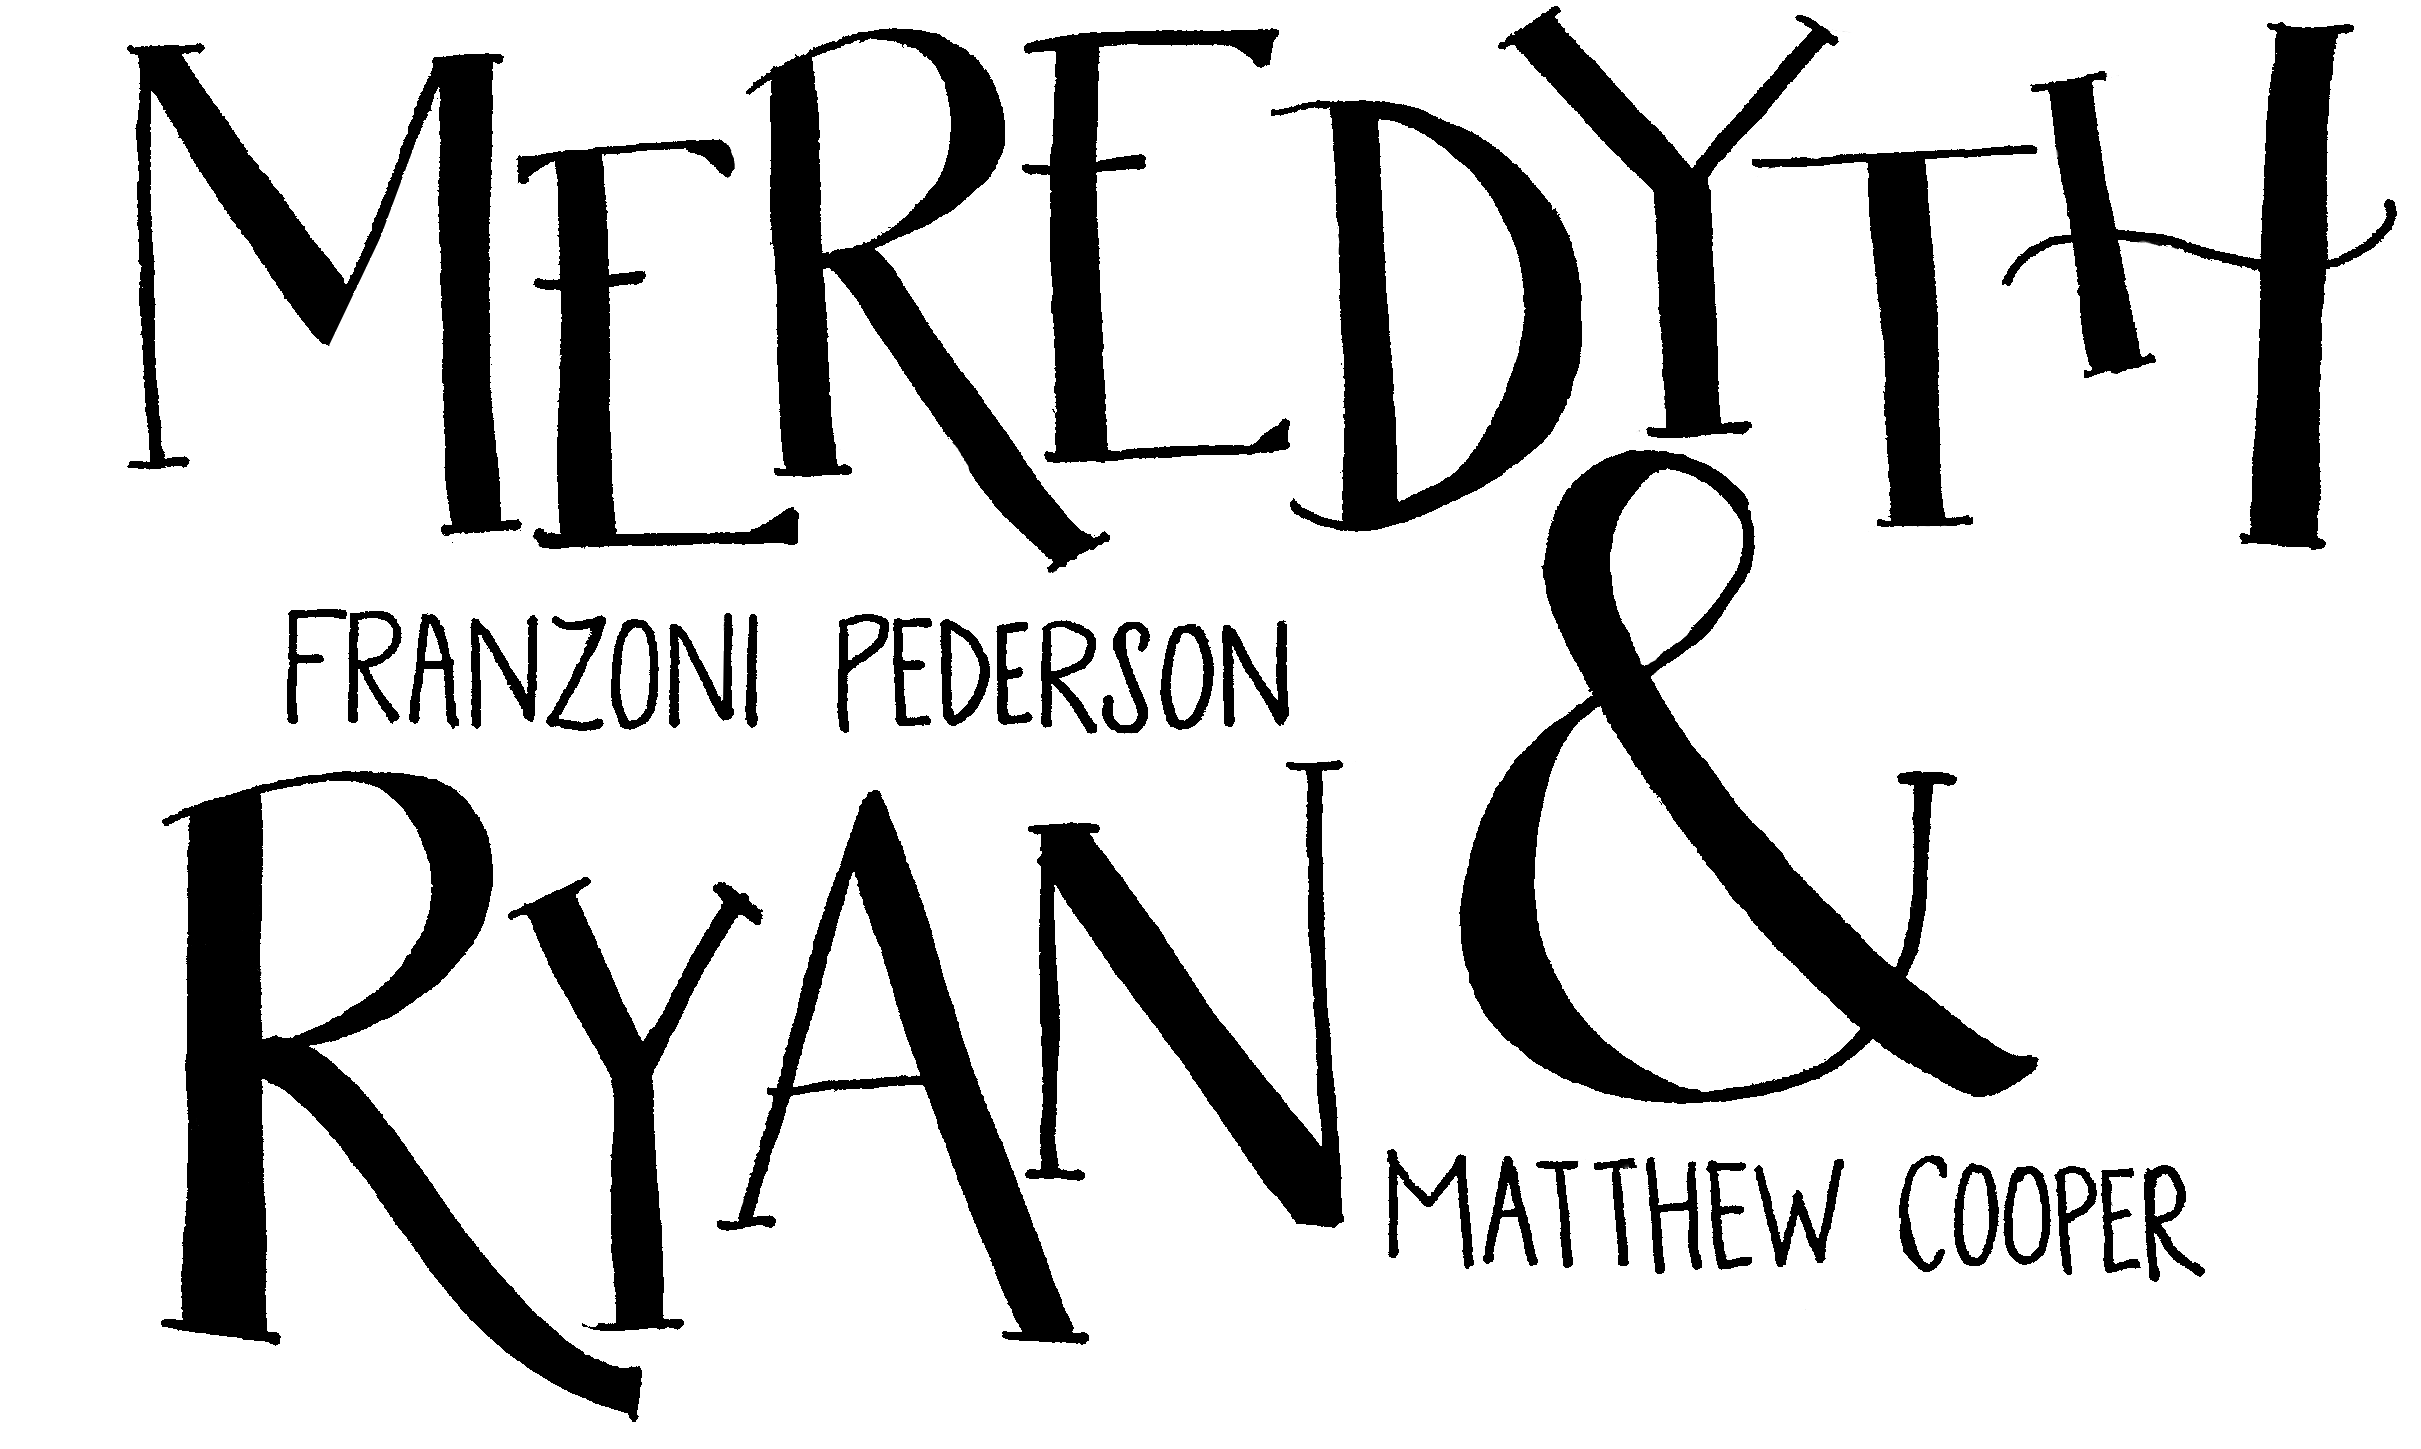 MEREDYTH
FRANZONI PEDERSON
&
RYAN
MATTHEW COOPER